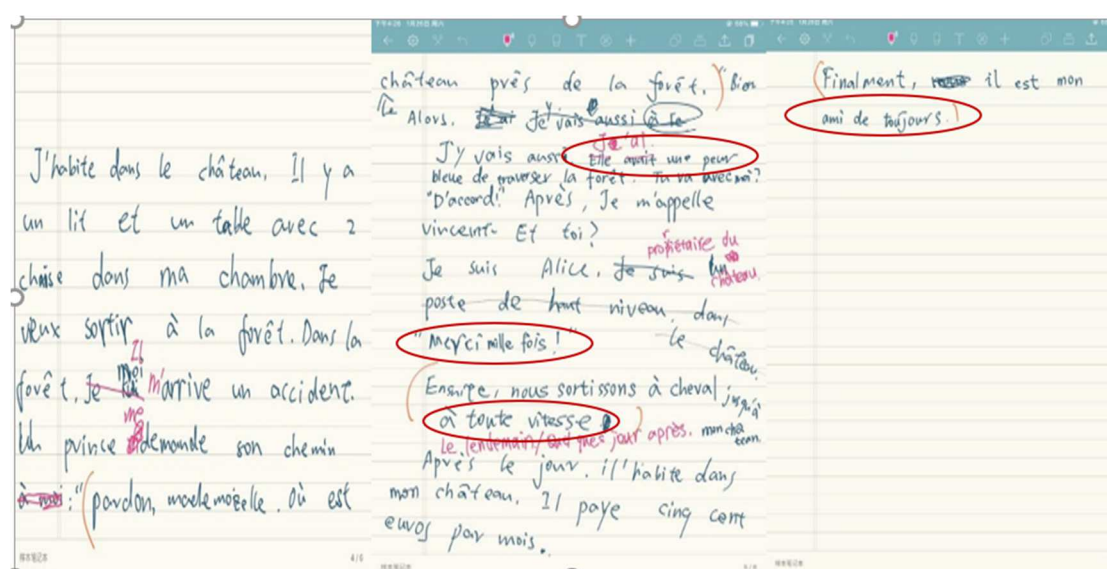 J'habite dans le château. Il y a
un lit et un table avec 2
chaise dans ma chambre. Je
veux sortir à la forêt. Dans la
Il
moi
forêt. Je m'arrive un accident.
me
Un prince demande son chemin
à moi :"(pardon, mademoiselle. Où est
样本笔记本
4/6
下午4:26 1月26日 周六
château près de la forêt.) "Bien
Alors. Je vais aussi à le
J'ai
J'y vais aussi Elle avait une peur
bleue de traverser la forêt. Tu va avec moi?
"D'accord!" Après, Je m'appelle
vincent. Et toi?
propriétaire du
Je suis Alice. Je suis un
château.
poste de haut niveau, dans
le château.
"Merci mille fois!"
Ensuite, nous sortissons à cheval jusqu'à
à toute vitesse
mon château.
Le lendemain/Quelques jour après.
Après le jour. il l'habite dans
mon château. Il paye cinq cent
euros par mois.
样本笔记本
(Finalment, il est mon
ami de toujours.)
样本笔记本